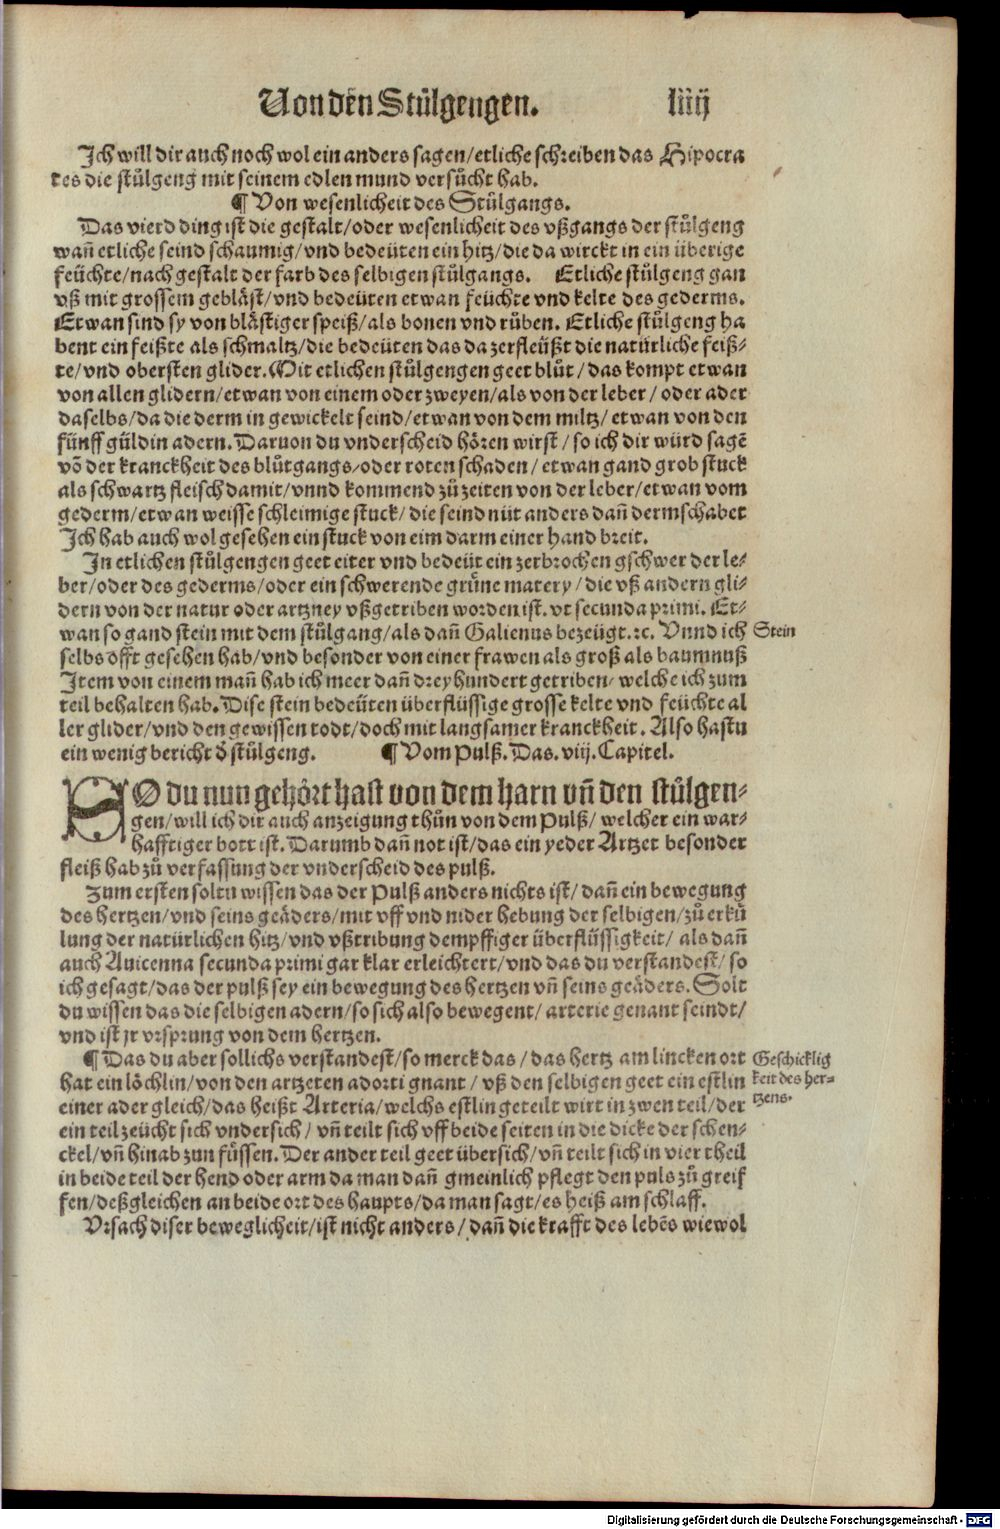 Von dẽn Stůlgengen. liiij
Ich will dir auch noch wol ein anders sagen/etliche schreiben das Hipocra
tes die stůlgeng mit seinem edlen mund versůcht hab.
¶ Von wesenlicheit des Stůlgangs.
Das vierd ding ist die gestalt/oder wesenlicheit des vßgangs der stůlgeng
wañ etliche seind schaumig/vnd bedeüten ein hitz/die da wirckt in ein überige
feüchte/nach gestalt der farb des selbigen stůlgangs. Etliche stůlgeng gan
vß mit grossem gebläst/vnd bedeüten etwan feüchte vnd kelte des gederms.
Etwan sind sy von blästiger speiß/als bonen vnd růben. Etliche stůlgeng ha
bent ein feißte als schmaltz/die bedeüten das da zerfleüßt die natürliche feiß-
te/vnd obersten glider. Mit etlichen stůlgengen geet blůt/das kompt etwan
von allen glidern/etwan von einem oder zweyen/als von der leber/oder ader
daselbs/da die derm in gewickelt seind/etwan von dem miltz/etwan von den
fünff güldin adern. Daruon du vnderscheid hören wirst/so ich dir würd sagẽ
võ der kranckheit des blůtgangs/oder roten schaden/etwan gand grob stuck
als schwartz fleisch damit/vnnd kommend zů zeiten von der leber/etwan vom
gederm/etwan weisse schleimige stuck/die seind nüt anders dañ dermschabet
Ich hab auch wol gesehen ein stuck von eim darm einer hand breit.
In etlichen stůlgengen geet eiter vnd bedeüt ein zerbrochen gschwer der le-
ber/oder des gederms/oder ein schwerende grüne matery/die vß andern gli-
dern von der natur oder artzney vßgetriben worden ist. vt secunda primi. Et-
wan so gand stein mit dem stůlgang/als dañ Galienus bezeügt.ꝛc. Vnnd ich
Stein
selbs offt gesehen hab/vnd besonder von einer frawen als groß als baumnuß
Item von einem mañ hab ich meer dañ drey hundert getriben/welche ich zum
teil behalten hab. Dise stein bedeüten überflüssige grosse kelte vnd feüchte al
ler glider/vnd den gewissen todt/doch mit langsamer kranckheit. Also hastu
ein wenig bericht ð stůlgeng. ¶ Vom Pulß. Das .viij. Capitel.
SO du nun gehört hast von dem harn vñ den stůlgen-
gen/will ich dir auch anzeigung thůn von dem Pulß/welcher ein war-
hafftiger bott ist. Darumb dañ not ist/das ein yeder Artzet besonder
fleiß hab zů verfassung der vnderscheid des pulß.
Zum ersten soltu wissen das der Pulß anders nichts ist/dañ ein bewegung
des hertzen/vnd seins geäders/mit vff vnd nider hebung der selbigen/zů erkü
lung der natürlichen hitz/vnd vßtribung dempffiger überflüssigkeit/als dañ
auch Auicenna secunda primi gar klar erleichtert/vnd das du verstandest/so
ich gesagt/das der pulß sey ein bewegung des hertzen vñ seins geäders. Solt
du wissen das die selbigen adern/so sich also bewegent/arterie genant seindt/
vnd ist jr vrsprung von dem hertzen.
¶ Das du aber sollichs verstandest/so merck das/das hertz am lincken ort
hat ein löchlin/von den artzeten adorti gnant/vß den selbigen geet ein estlin
einer ader gleich/das heißt Arteria/welchs estlin geteilt wirt in zwen teil/der
Geschicklig
keit des her-
tzens.
ein teil zeücht sich vndersich/vñ teilt sich vff beide seiten in die dicke der schen-
ckel/vñ hinab zun füssen. Der ander teil geet übersich/vñ teilt sich in vier theil
in beide teil der hend oder arm da man dañ gmeinlich pflegt den puls zů greif
fen/deßgleichen an beide ort des haupts/da man sagt/es heiß am schlaff.
Vrsach diser beweglicheit/ist nicht anders/dañ die krafft des lebẽs wiewol
Digitalisierung gefördert durch die Deutsche Forschungsgemeinschaft - DFG